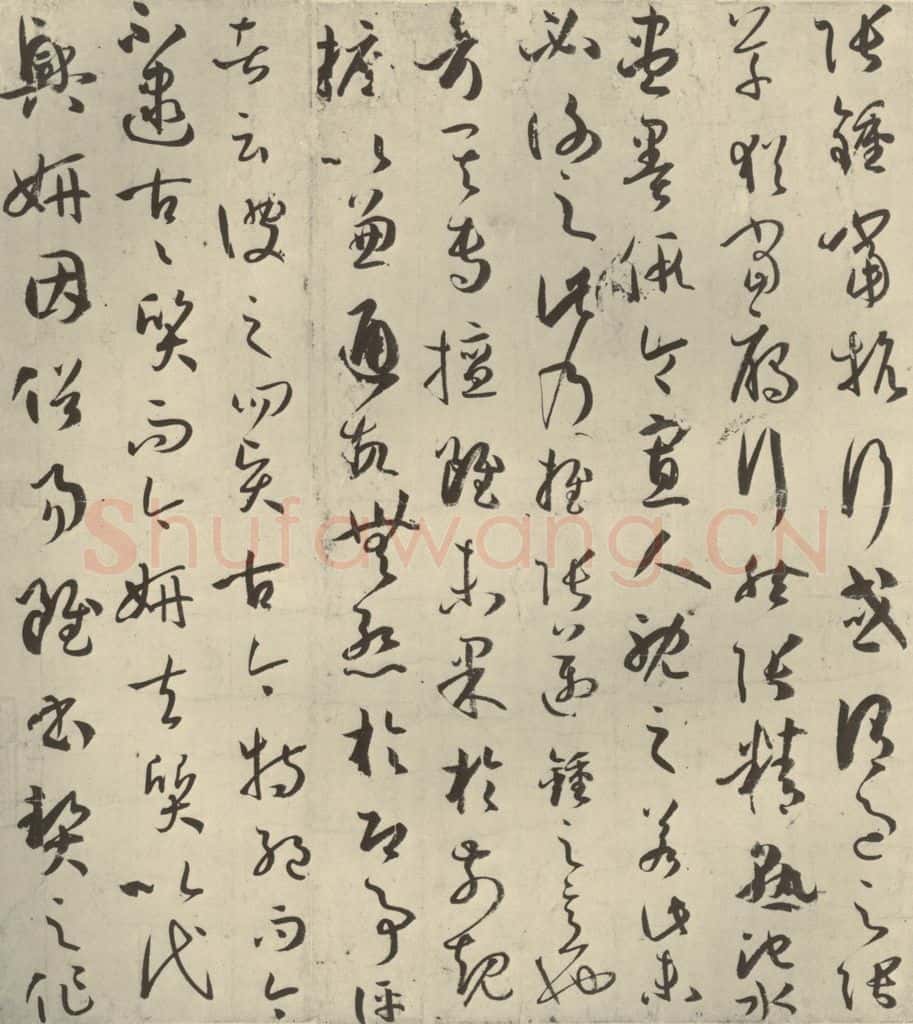 張鍾當抗行或謂過之張
草猶當雁行然張精熟池水
盡墨假令寡人耽之若此未
必謝之此乃推張邁鍾之意也
考其專擅雖未果於前規
摭以兼通故無慚於即事評
者云彼之四賢古今特絕而今
不逮古〻質而今妍夫質以代
興妍因俗易雖書契之作
Shufawang.CN